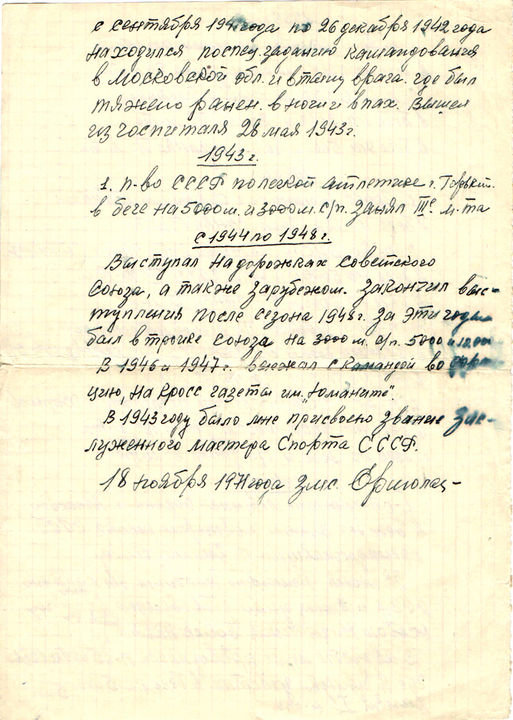 с сентября 194 года по 26 декабря 1942 года
находился по спец. заданию камандования
в Московской обл. и в тылу врага. где был
тяжело ранен. в ноги и в пах. Вышел
из госпиталя 28 мая 1943 г.
1943 г.
1. п-во СССР по легкой атлетике г. Горький.
в беге на 5000 м. и 3000 м. с/п. Занял III е. м-та
с 1944 по 1948 г.
Выступал на дорожках Советского
Союза, а также зарубежом. закончил выс-
тупления после сезона 1948 г. за эти годы
был в тройке Союза на 3000 м. с/п. 5000 и 10.000
В 1946 и 1947 г. выезжал с камандой во Фран-
цию, на кросс газеты им. "Юманите".
В 1943 году было мне присвоено звание зас-
луженного мастера Спорта СССР.
18 ноября 1971 года змс.